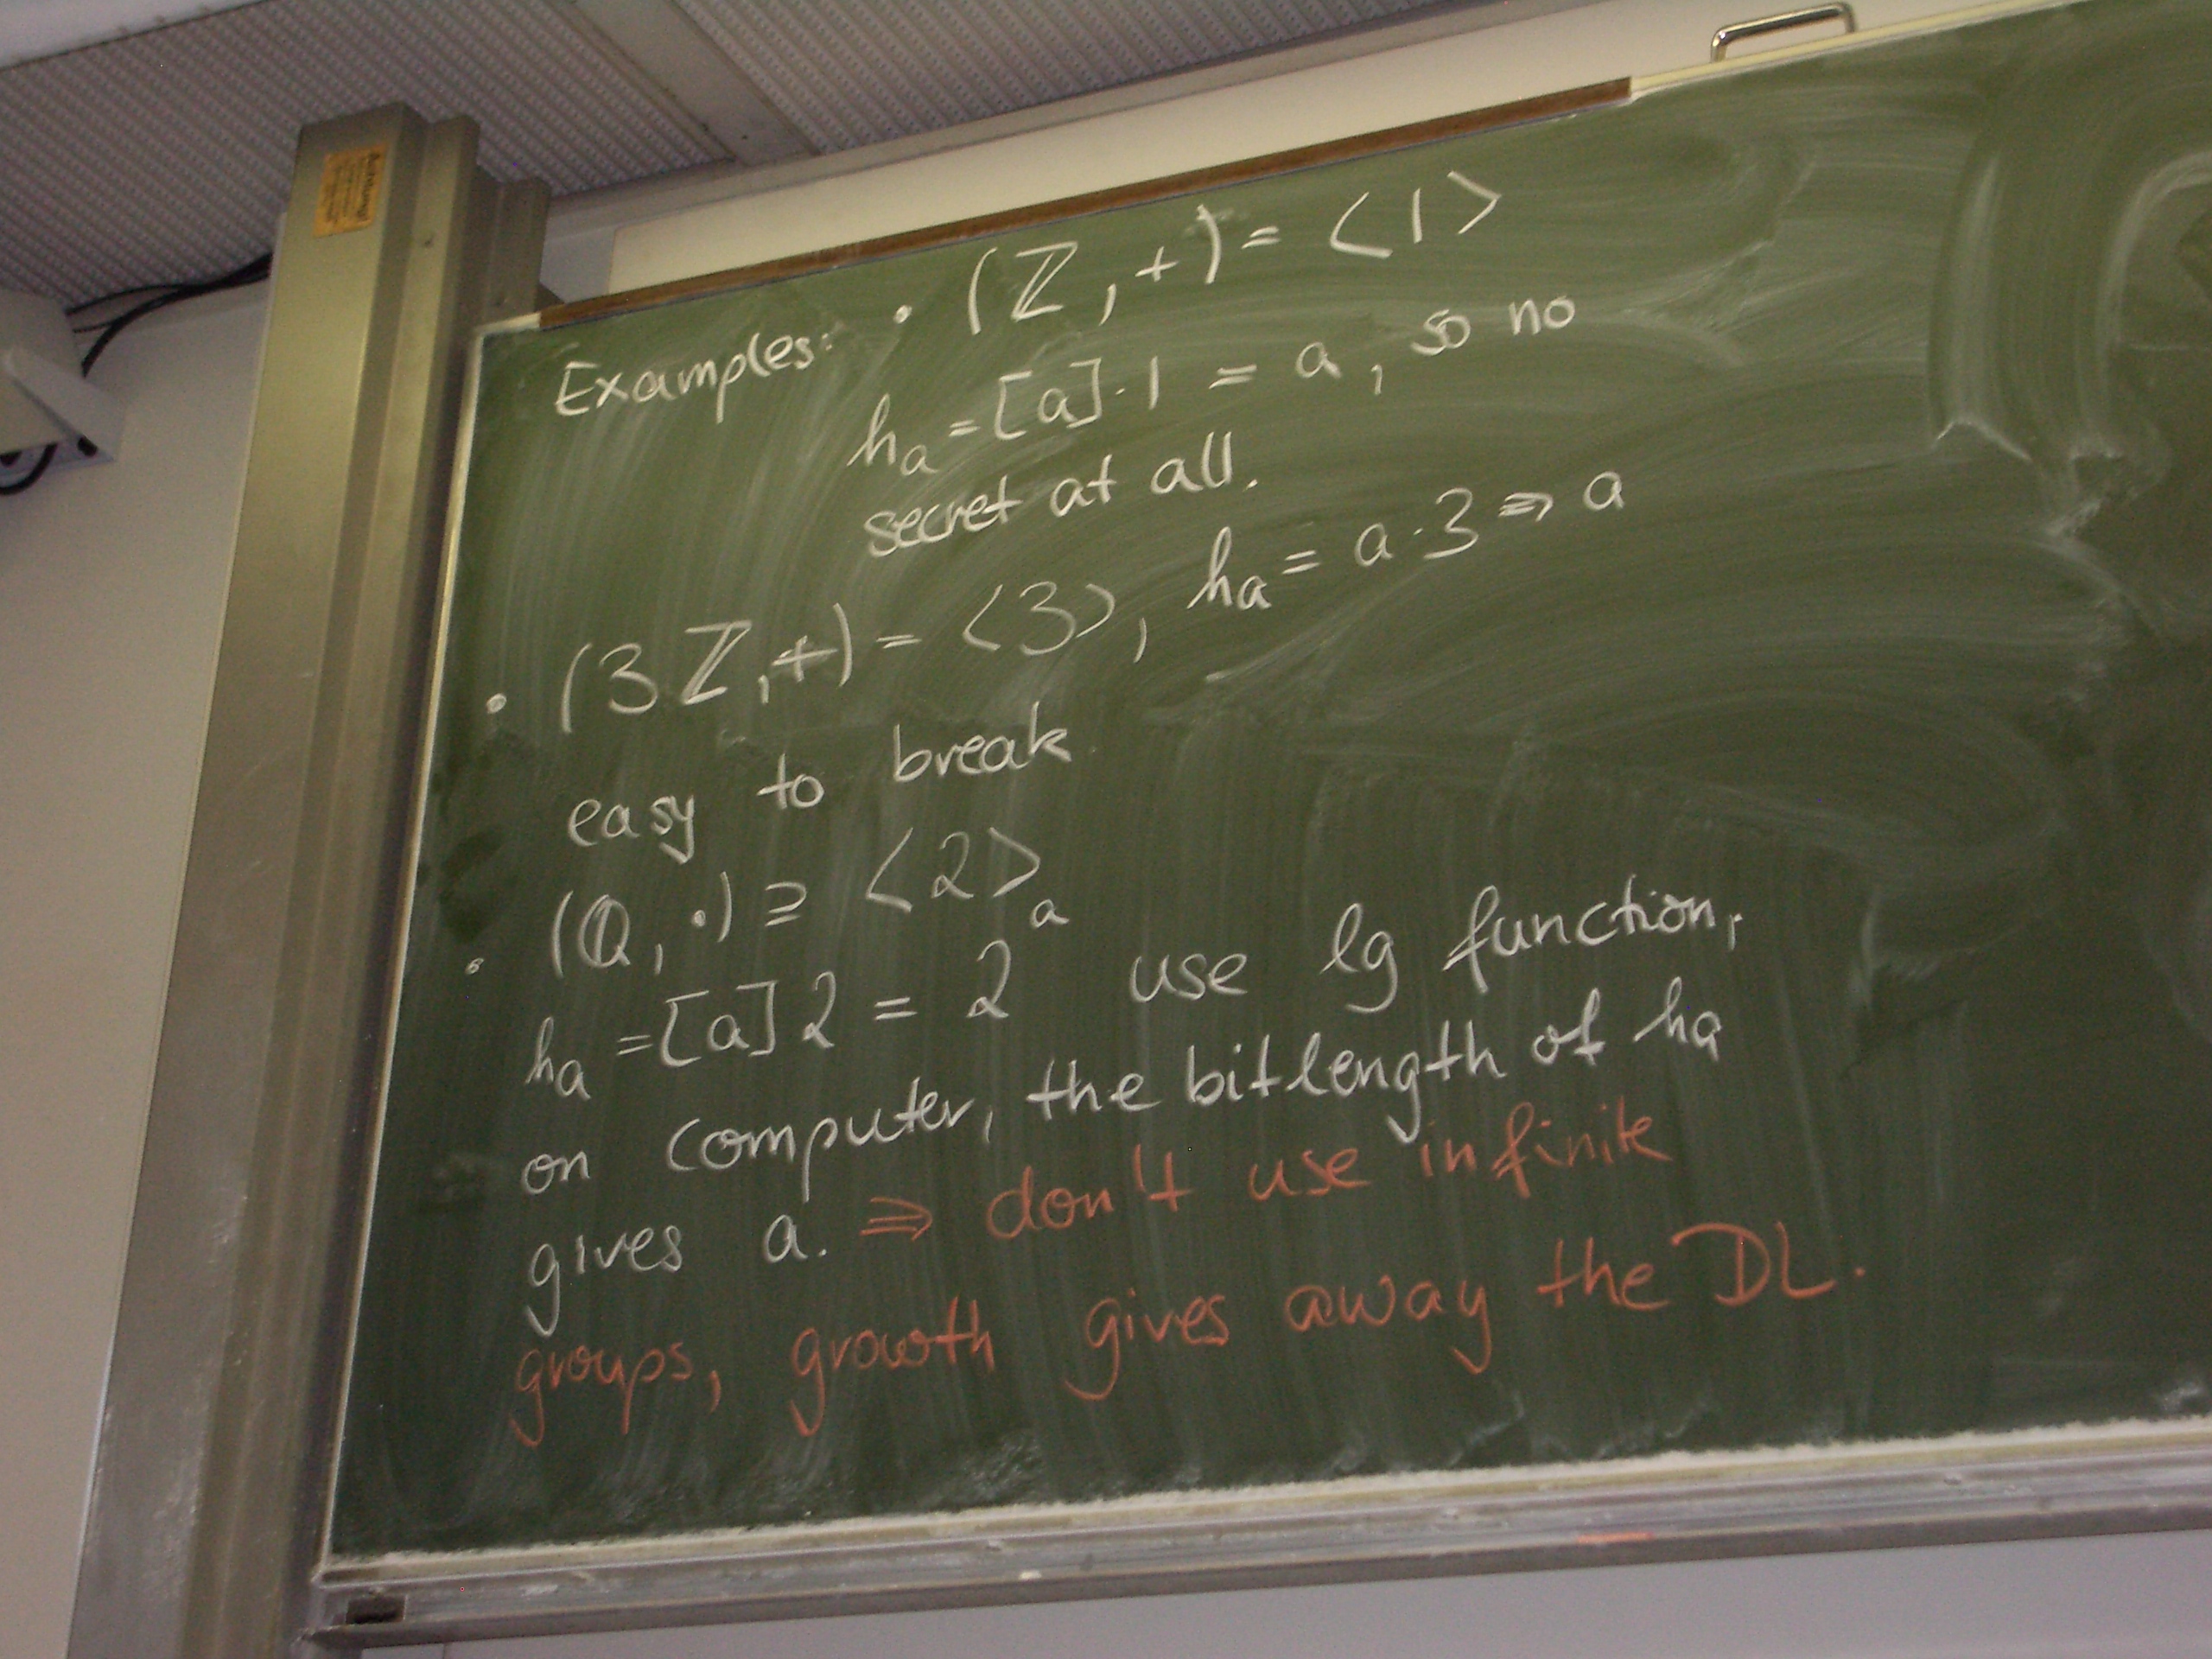 Examples: • (ℤ, +) = <1>
hₐ = [a]·1 = a, so no
secret at all.
• (3ℤ, +) = <3>, hₐ = a·3 ⇒ a
easy to break
• (ℚ, •) ≥ <2>
hₐ = [a] 2 = 2ᵃ use lg function,
on computer, the bitlength of hₐ
gives a. ⇒ don't use infinite
groups, growth gives away the DL.
Achtung!